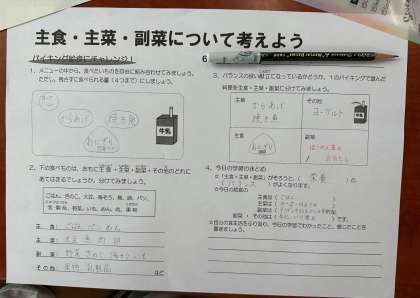 主食・主菜・副菜について考えよう
バイキング給食にチャレンジ！
6
1．メニューの中から、食べたいものを自由に組み合わせてみましょう。
ただし、残さずに食べられる量（4つまで）にしましょう。
からあげ
焼き魚
おにぎり
牛乳
2．下の食べものは、おもに主食・主菜・副菜・その他のどれに
あてはまるでしょうか。分けてみましょう。
ごはん、きのこ、大豆、海そう、魚、卵、パン、
乳製品、野菜、いも、めん、肉、果物
主食： ごはん パン めん
主菜： 大豆 魚 肉 卵
副菜： 野菜 きのこ 海そう いも
その他： 果物 乳製品
など
3．バランスの良い献立になっているかどうか、1のバイキングで選んだ
料理を主食・主菜・副菜に分けてみましょう。
主菜
からあげ
焼き魚
その他
ヨーグルト
主食
おにぎり
副菜
ほうれん草の
4．今日の学習のまとめ
☆（主食・主菜・副菜）がそろうと、（栄養）の
（バランス）がよくなります。
☆今日の給食の
主食は（ごはん）
主菜は（
副菜は（
副菜・その他は（
☆自分の食生活をふり返り、今日の学習でわかったこと、感じたことを
書きましょう。